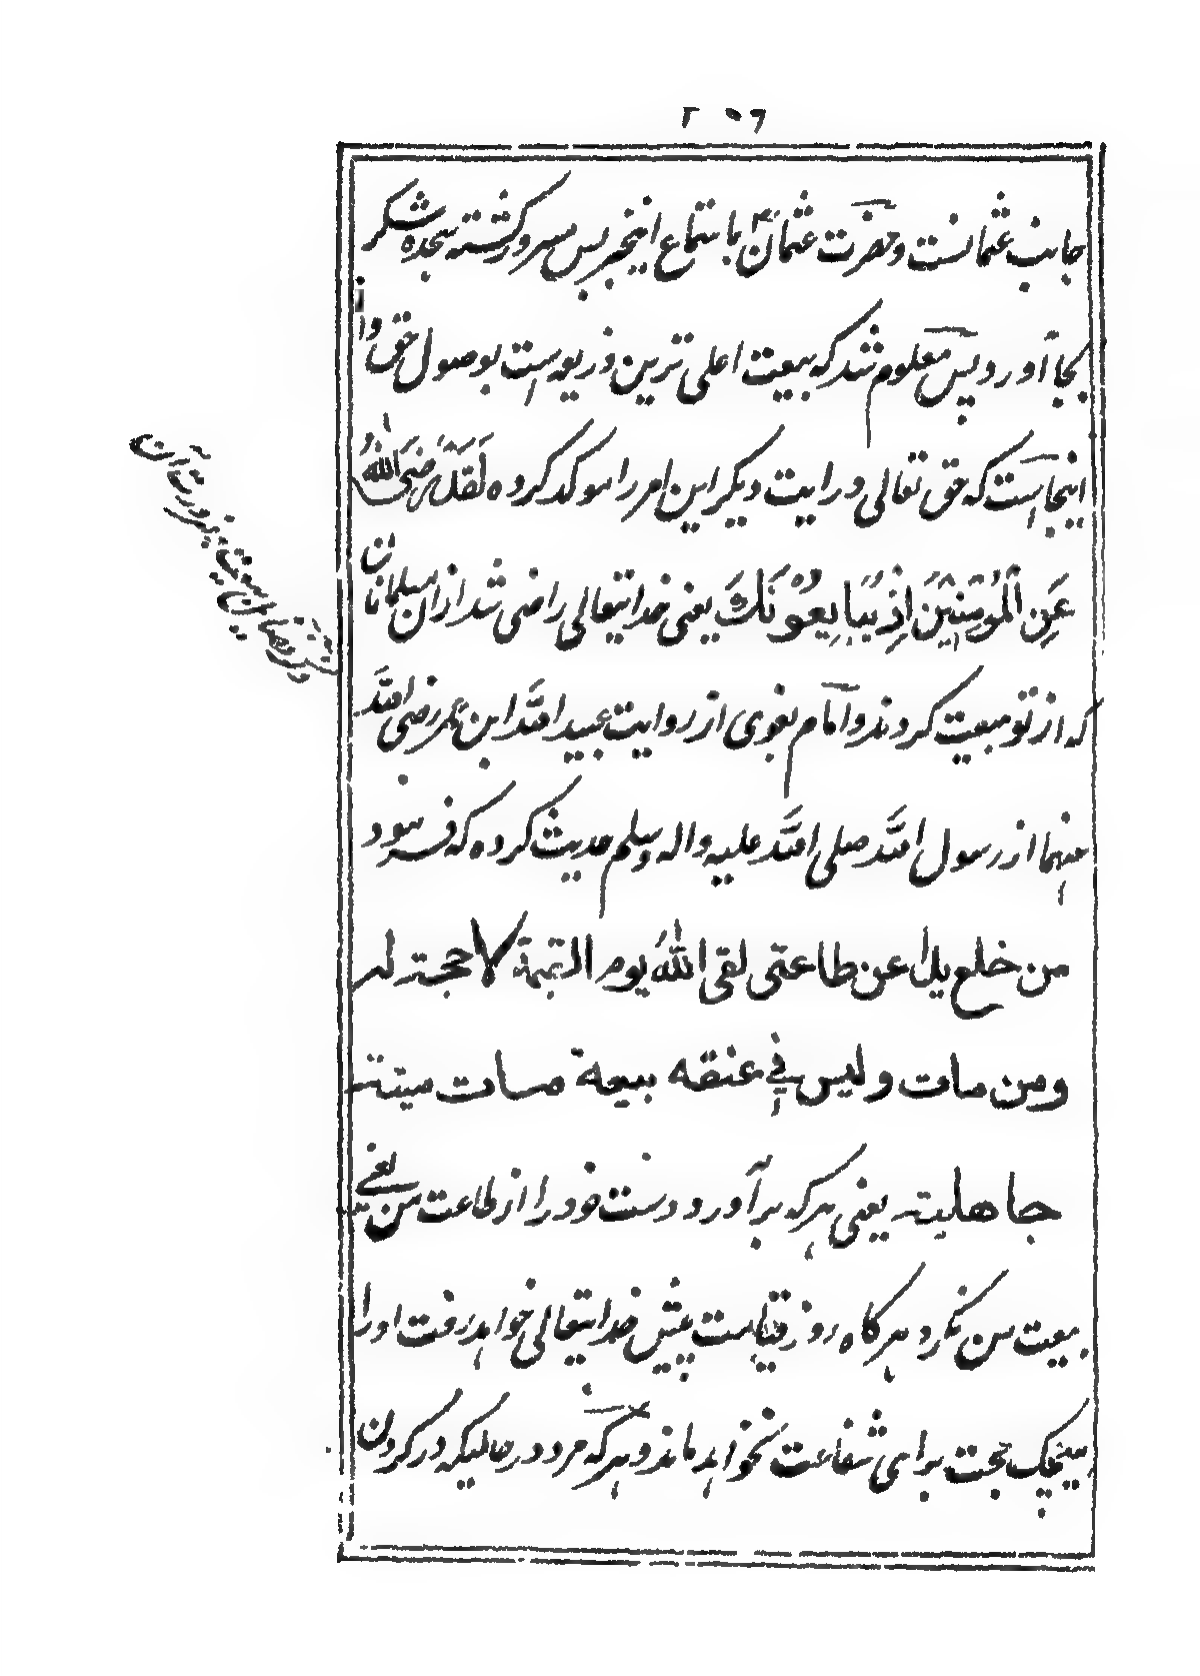 ۲۵۶
جانب عثمانست و حضرت عثمان باستماع اینخبر بس مسرور گشته سجده شکر
بجا آورد پس معلوم شد که بیعت اعلی ترین ذریعه است بوصول حق و از
اینجاست که حق تعالی در آیت دیگر این امر را موکد کرده لَقَدْ رَضِیَ اللهُ
عَنِ الْمُؤمِنِیْنَ اِذْ یُبَایِعُوْنَكَ یعنی خدایتعالی راضی شد از ان مسلمانان
که از تو بیعت کردند و امام بغوی از روایت عبید الله ابن عمر رضی الله
عنهما از رسول الله صلی الله علیه واله وسلم حدیث کرده که فرمود
من خلع یدا عن طاعتی لقی الله یوم القیمة لا حجة له
ومن مات ولیس فی عنقه بیعة مات میتة
جاهلیة یعنی هر که برآورد دست خود را از طاعت من یعنے
بیعت من نکرد هرگاه روز قیامت پیش خدایتعالی خواهد رفت او را
هیچک حجت برای شفاعت نخواهد ماند و هر که مرد در حالیکه در گردن
ذکر فضائل بیعت در قرآن